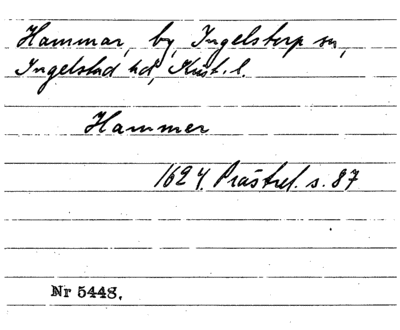 Hammar, by, Ingelstorp sn,
Ingelstad hd, Krist. l.
Hammer
1624. Prästrel. s. 87
Nr 5448.